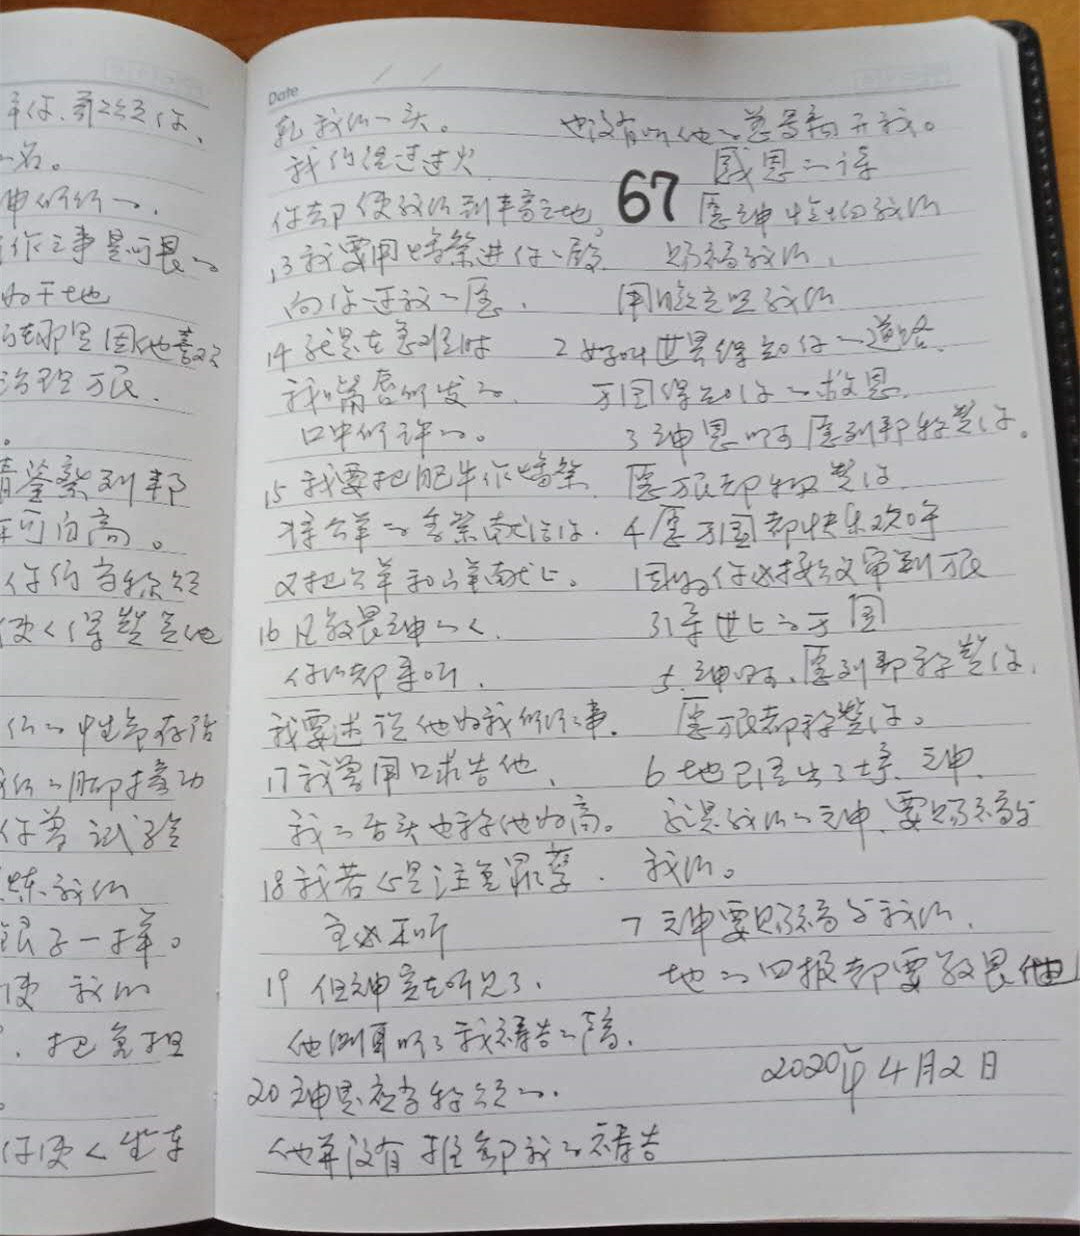 稱谢你
一名。
神所行一.
所作之事是可畏一
为干地
在那里因他喜欢
治理万民.
。
情鉴察列邦
不可自高。
你们当称颂
使人得赞美他
们的性命存活
我们的脚摇动
你曾试验
炼我们
银子一样。
使我们
把重担
你使人坐车
Date
轧我们一头。
我们经过过火
你却使我们到丰富之地
13 我要用燔祭进你一殿.
向你还我一愿.
14 就是在急难时
我嘴唇所发一.
口中所许一。
15 我要把肥牛作燔祭.
将公羊一香祭献给你.
又把公羊和山羊献上。
16 凡敬畏神一人.
你们都来听.
我要述说他为我所行之事.
17 我曾用口求告他.
我一舌头也称他为高。
18 我若心里注重罪孽.
主必不听
19 但神实在听见了.
他侧耳听了我祷告一声.
20 神是应当称颂一.
他并没有推却我一祷告
也没有叫他一慈爱离开我。
感恩一诗
67 愿神怜悯我们
赐福我们,
用脸光照我们
2 好叫世界得知你一道路.
万国得知你一救恩.
3 神啊 愿列邦称赞你。
愿万民都称赞你
4 愿万国都快乐欢呼
因为你必按公义审判万民
引导世上一万国
5 神啊、愿列邦称赞你,
愿万民都称赞你。
6 地已经出了土产. 神.
就是我们一神、要赐福与
我们。
7 神要赐福与我们.
地一四报都要敬畏他
2020年4月2日